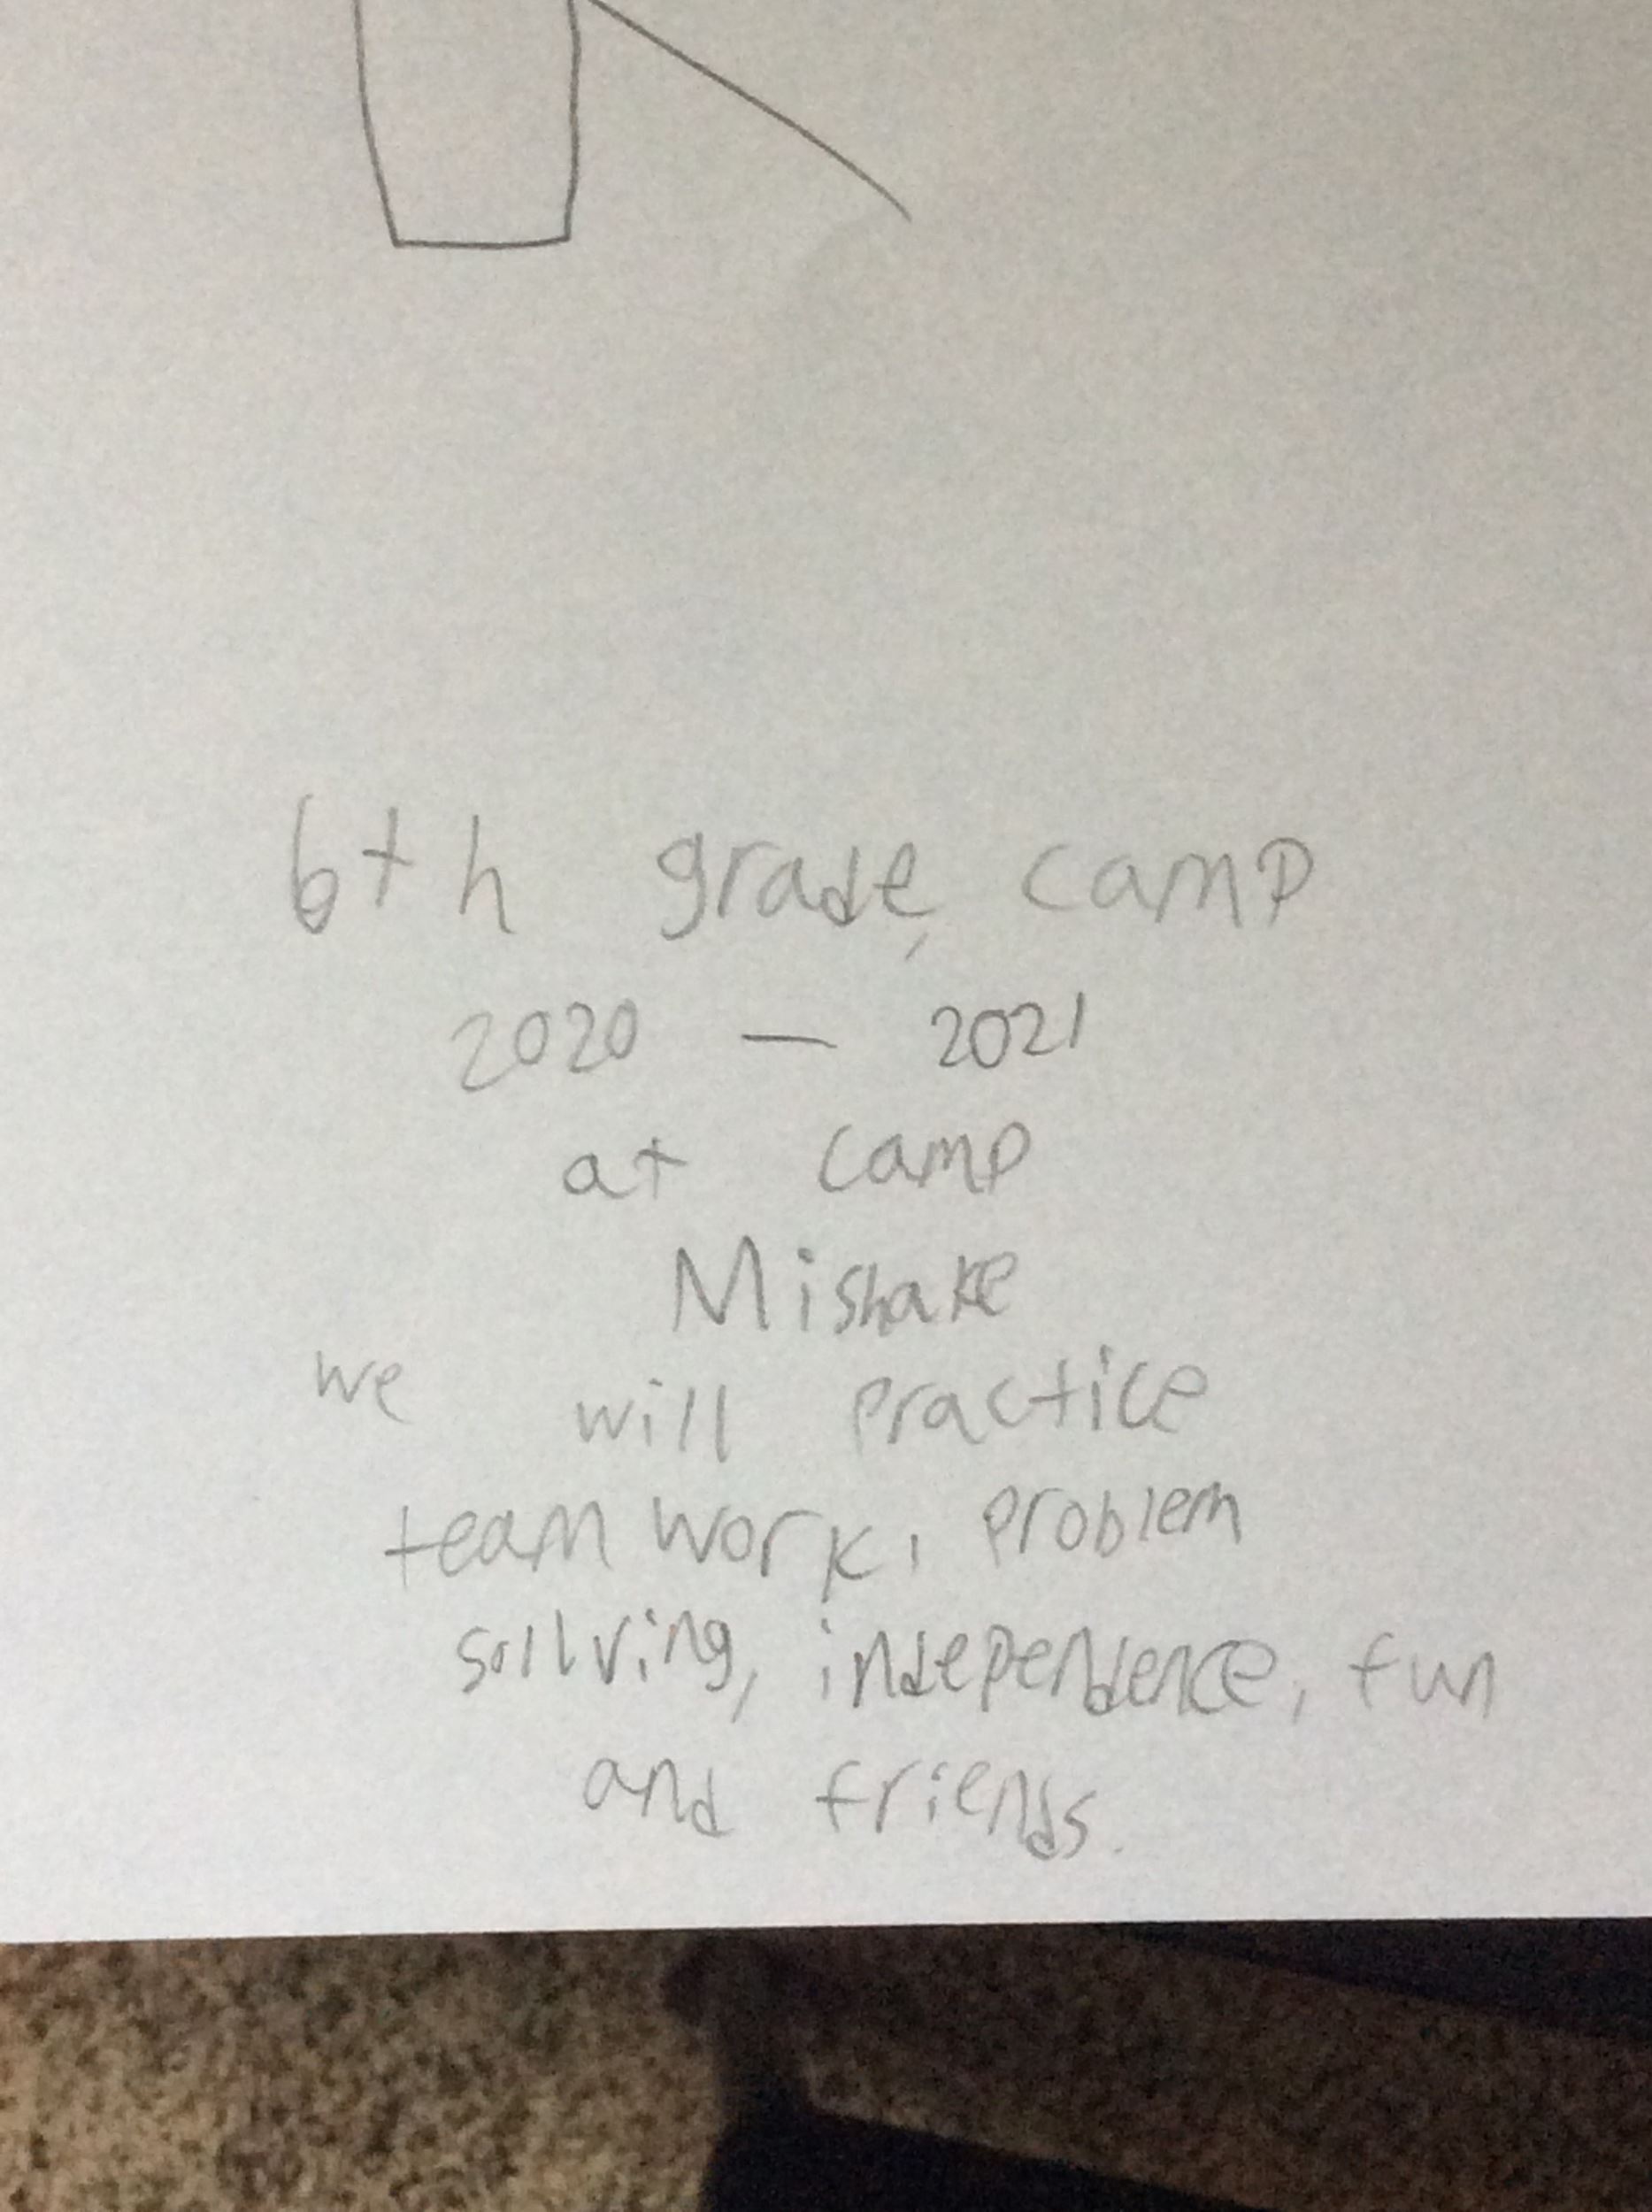 6th grade, camp
2020 — 2021
at camp
Mishake
we will practice
team work, problem
sollving, independence, fun
and friends.